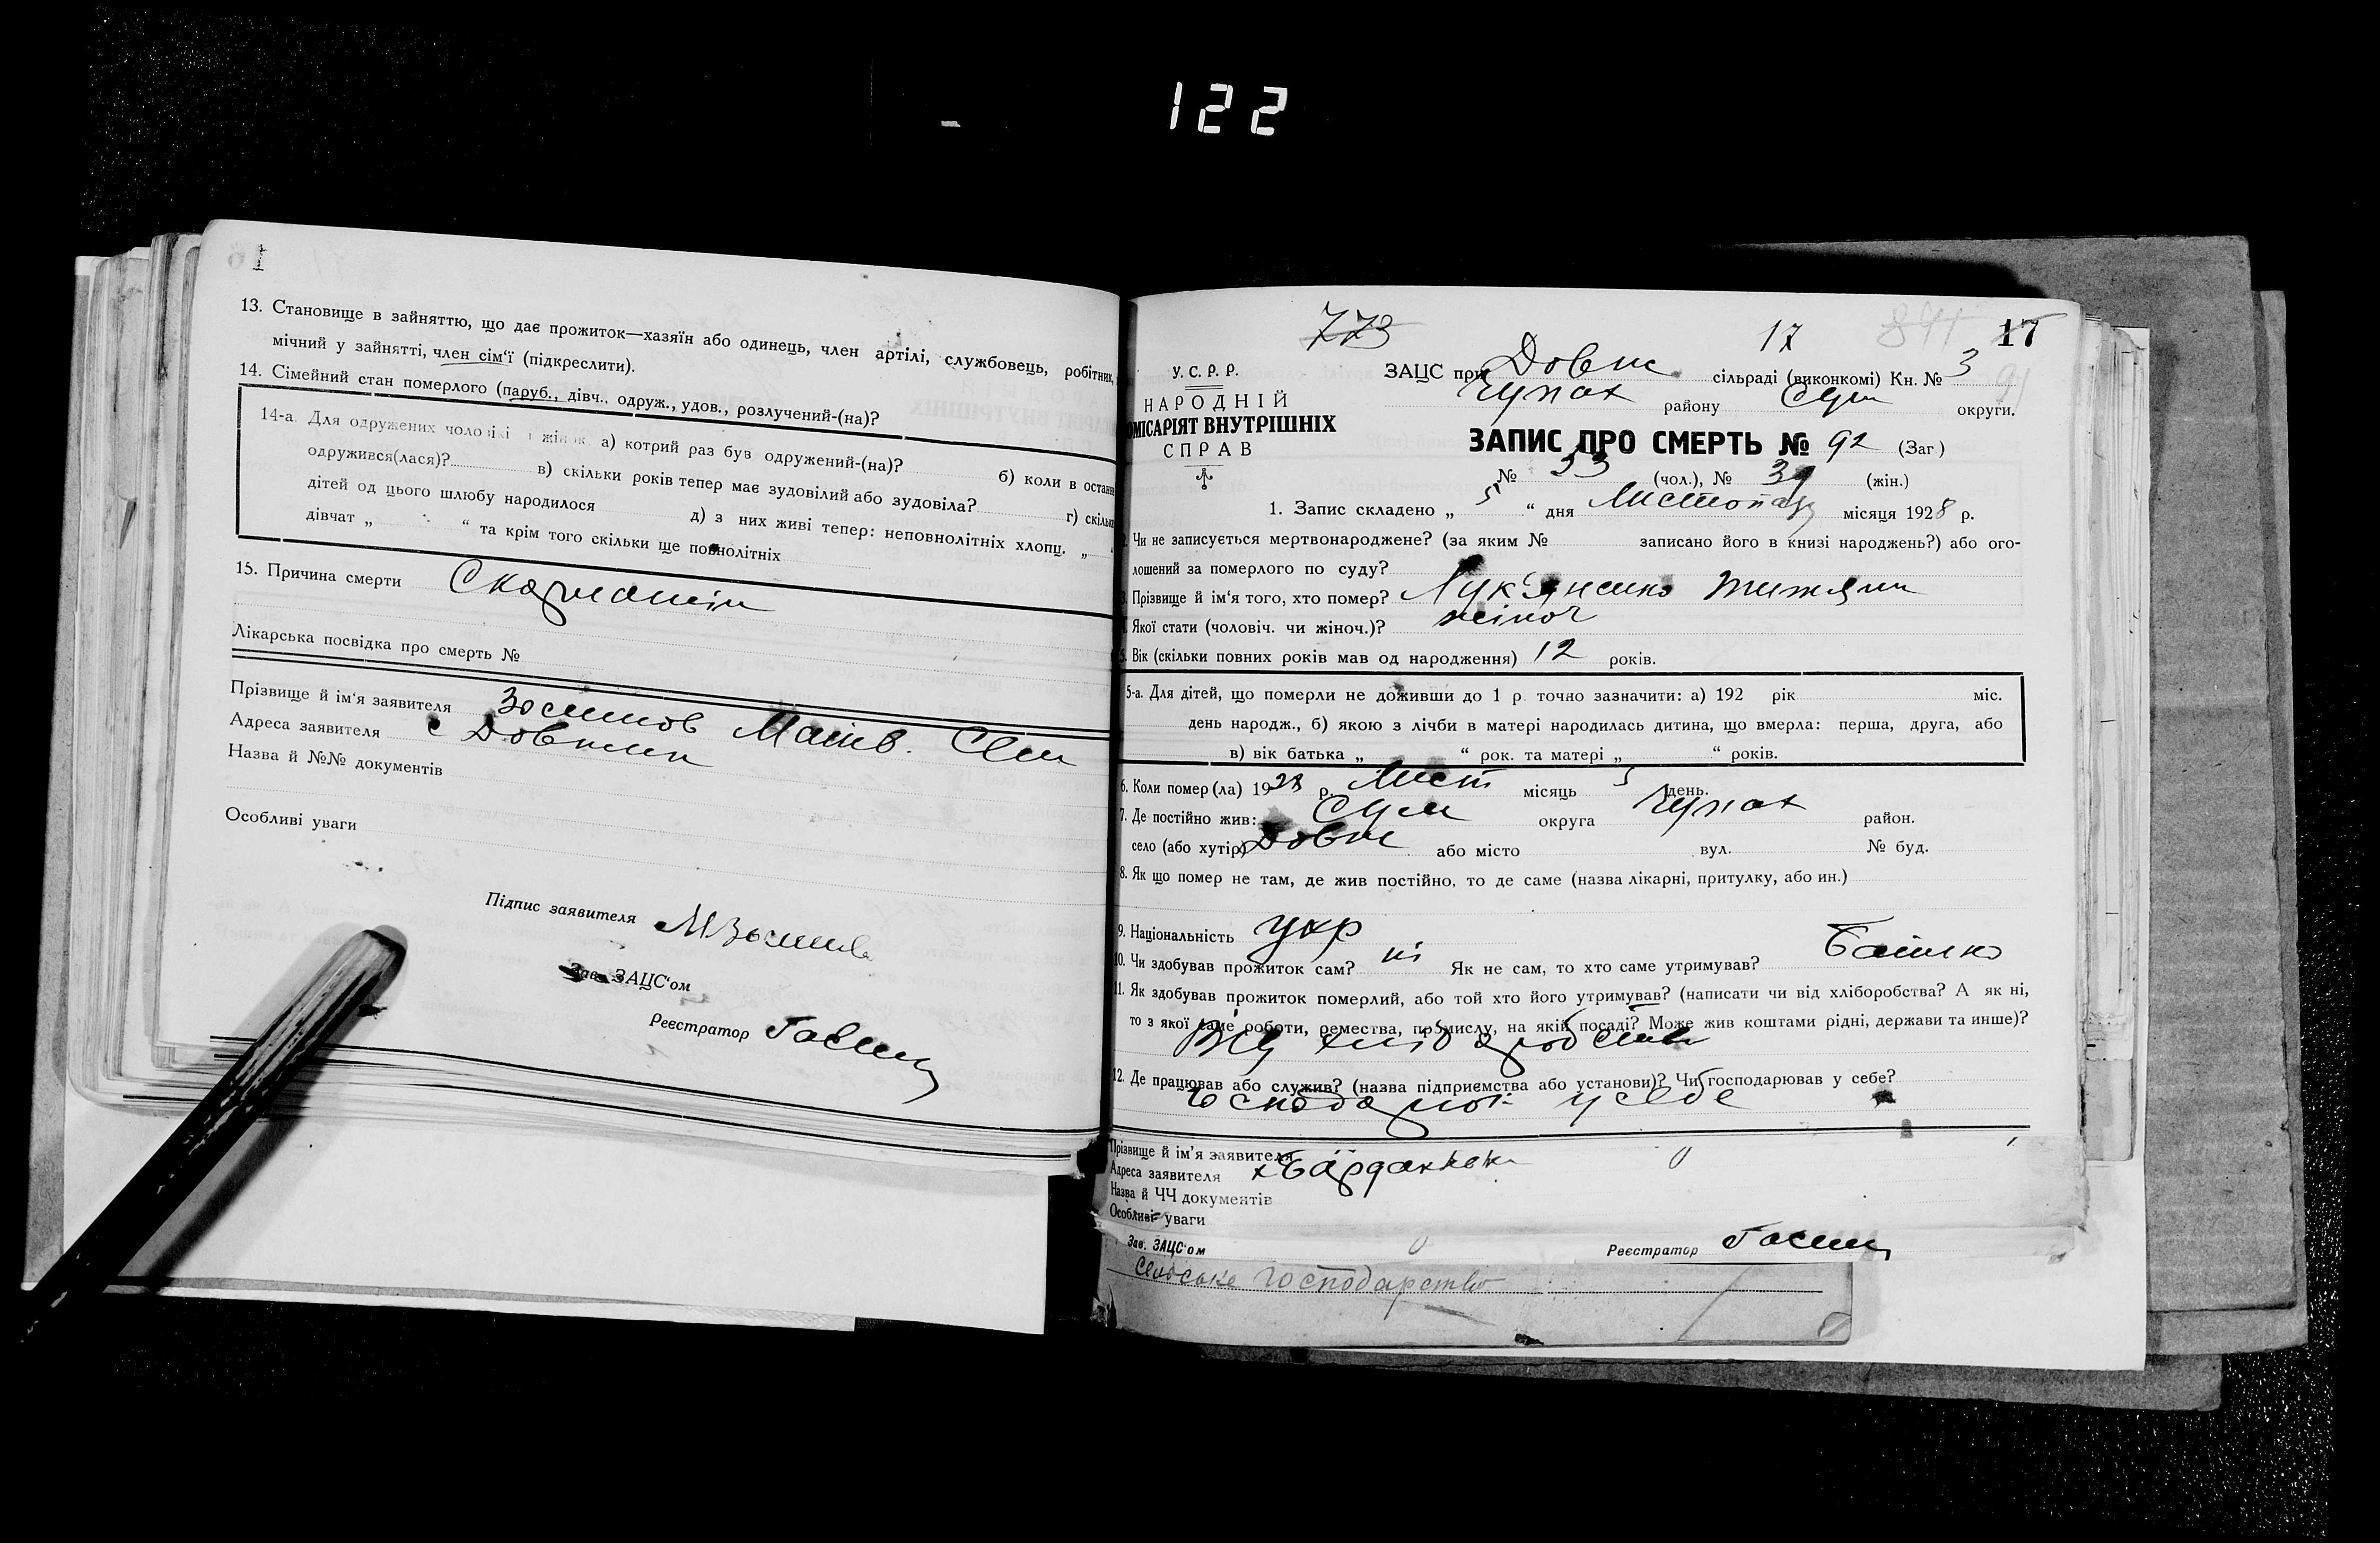 122
13. Становище в зайняттю, що дає прожиток—хазяїн або одинець, член артілі, службовець, робітник,
мічний у зайнятті, член сім'ї (підкреслити).
14. Сімейний стан померлого (паруб., дівч., одруж., удов., розлучений-(на)?
14-а. Для одружених чоловіків і жінок а) котрий раз був одружений-(на)? б) коли в останн
одружився(лася)? в) скільки років тепер має зудовілий або зудовіла? г) скільк
дітей од цього шлюбу народилося д) з них живі тепер: неповнолітніх хлопц. „
дівчат „ “ та крім того скільки ще повнолітніх
15. Причина смерти Скарлатін
Лікарська посвідка про смерть №
Прізвище й ім'я заявителя Зосимов Матв. Сем
Адреса заявителя с Довжик
Назва й №№ документів
Особливі уваги
Підпис заявителя МЗосимов
Зав. ЗАЦС'ом
Реєстратор
773 17 17
У. С. Р. Р.
НАРОДНІЙ
ОМІСАРІЯТ ВНУТРІШНІХ
СПРАВ
ЗАЦС при Довж сільраді (виконкомі) Кн. № 3
Чупах району Сум округи.
ЗАПИС ПРО СМЕРТЬ № 92 (Заг)
№ 53 (чол.), № 39 (жін.)
1. Запис складено „ 5 “ дня Листопада місяця 1928 р.
2. Чи не записується мертвонароджене? (за яким № записано його в книзі народжень?) або ого-
лошений за померлого по суду?
3. Прізвище й ім'я того, хто помер? Лук'яненко
4. Якої стати (чоловіч. чи жіноч.)? жіноч
5. Вік (скільки повних років мав од народження) 12 років.
5-а. Для дітей, що померли не доживши до 1 р. точно зазначити: а) 192 рік міс.
день народж., б) якою з лічби в матері народилась дитина, що вмерла: перша, друга, або
в) вік батька „ “ рок. та матері „ “ років.
6. Коли помер (ла) 1928 р. Лист місяць 5 день.
7. Де постійно жив: Сум округа Чупах район.
село (або хутір) Довж або місто вул. № буд.
8. Як що помер не там, де жив постійно, то де саме (назва лікарні, притулку, або ин.)
9. Національність укр
10. Чи здобував прожиток сам? ні Як не сам, то хто саме утримував? Батько
11. Як здобував прожиток померлий, або той хто його утримував? (написати чи від хліборобства? А як ні,
то з якої саме роботи, ремества, промислу, на якій посаді? Може жив коштами рідні, держави та инше)?
Від хліборобства
12. Де працював або служив? (назва підприємства або установи)? Чи господарював у себе?
Господарює у себе
Прізвище й ім'я заявителя
Адреса заявителя
Назва й ЧЧ документів
Особливі уваги
Зав. ЗАЦС'ом Реєстратор
Сельське господарство